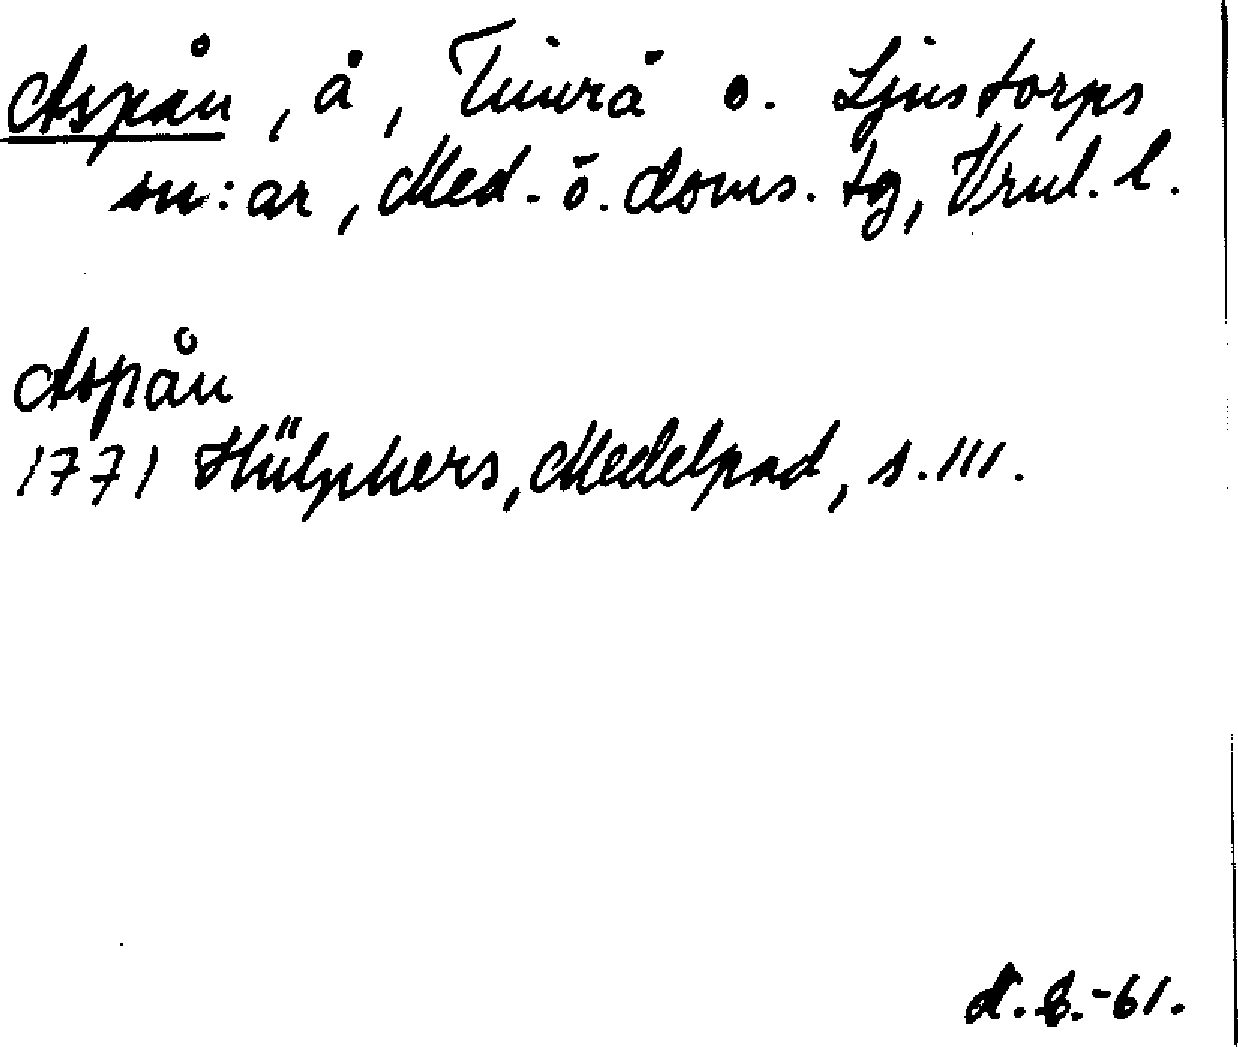 Aspån, å, Timrå o. Ljustorps
sn:ar, Med. ö. doms. tg, Vrnl. l.
Aspån
1771 Hülphers, Medelpad, s. 111.
N.B.-61.